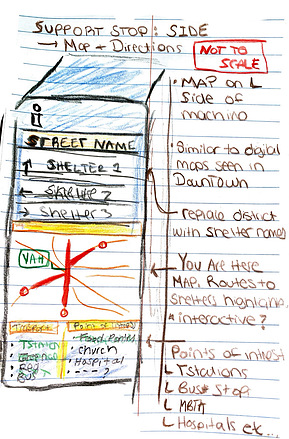 SUPPORT STOP: SIDE
→ Map + Directions
NOT TO
SCALE
i
STREET NAME
↑ SHELTER 1
← Shelter 2
→ Shelter 3
YAH
TRANSPORT
Tstation
Red
Bus
Point of Interest
• Food Pantry
• Church
• Hospital
• - - - - ?
• MAP on L
Side of
machine
• Similar to digital
maps seen in
Downtown
replace district
with shelter names
You Are Here
MAP. Routes to
Shelters highlighted
* interactive?
Points of intrest
↳ Tstations
↳ Bus Stop
↳ MBTA
↳ Hospitals etc...